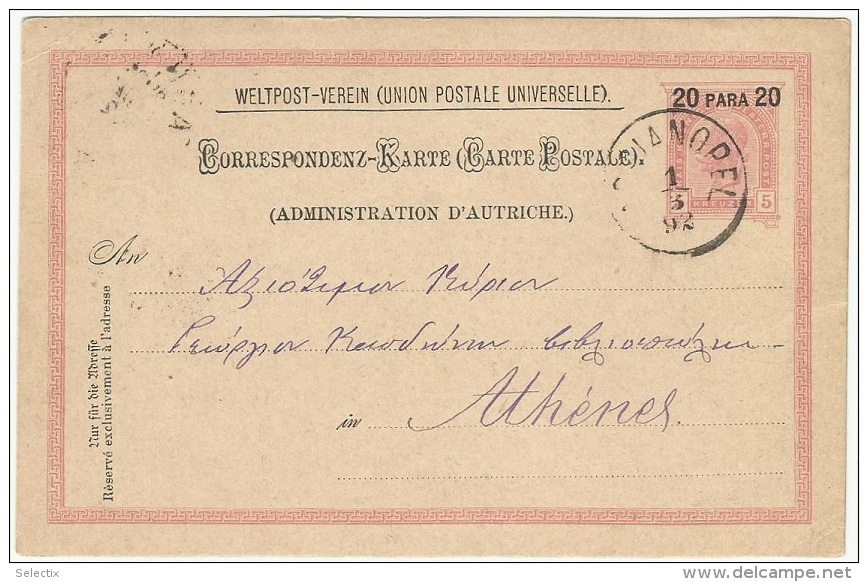 WELTPOST-VEREIN (UNION POSTALE UNIVERSELLE).
20 PARA 20
CORRESPONDENZ-KARTE (CARTE POSTALE).
(ADMINISTRATION D'AUTRICHE.)
KREUZER 5
IANOPEL
1
3
92
An
Ἀξιότιμον Κύριον
Γεώργιον Κασδόνην βιβλιοπώλην
in Athènes
Nur für die Adresse
Réservé exclusivement à l'adresse
Selectix
delcampe.net